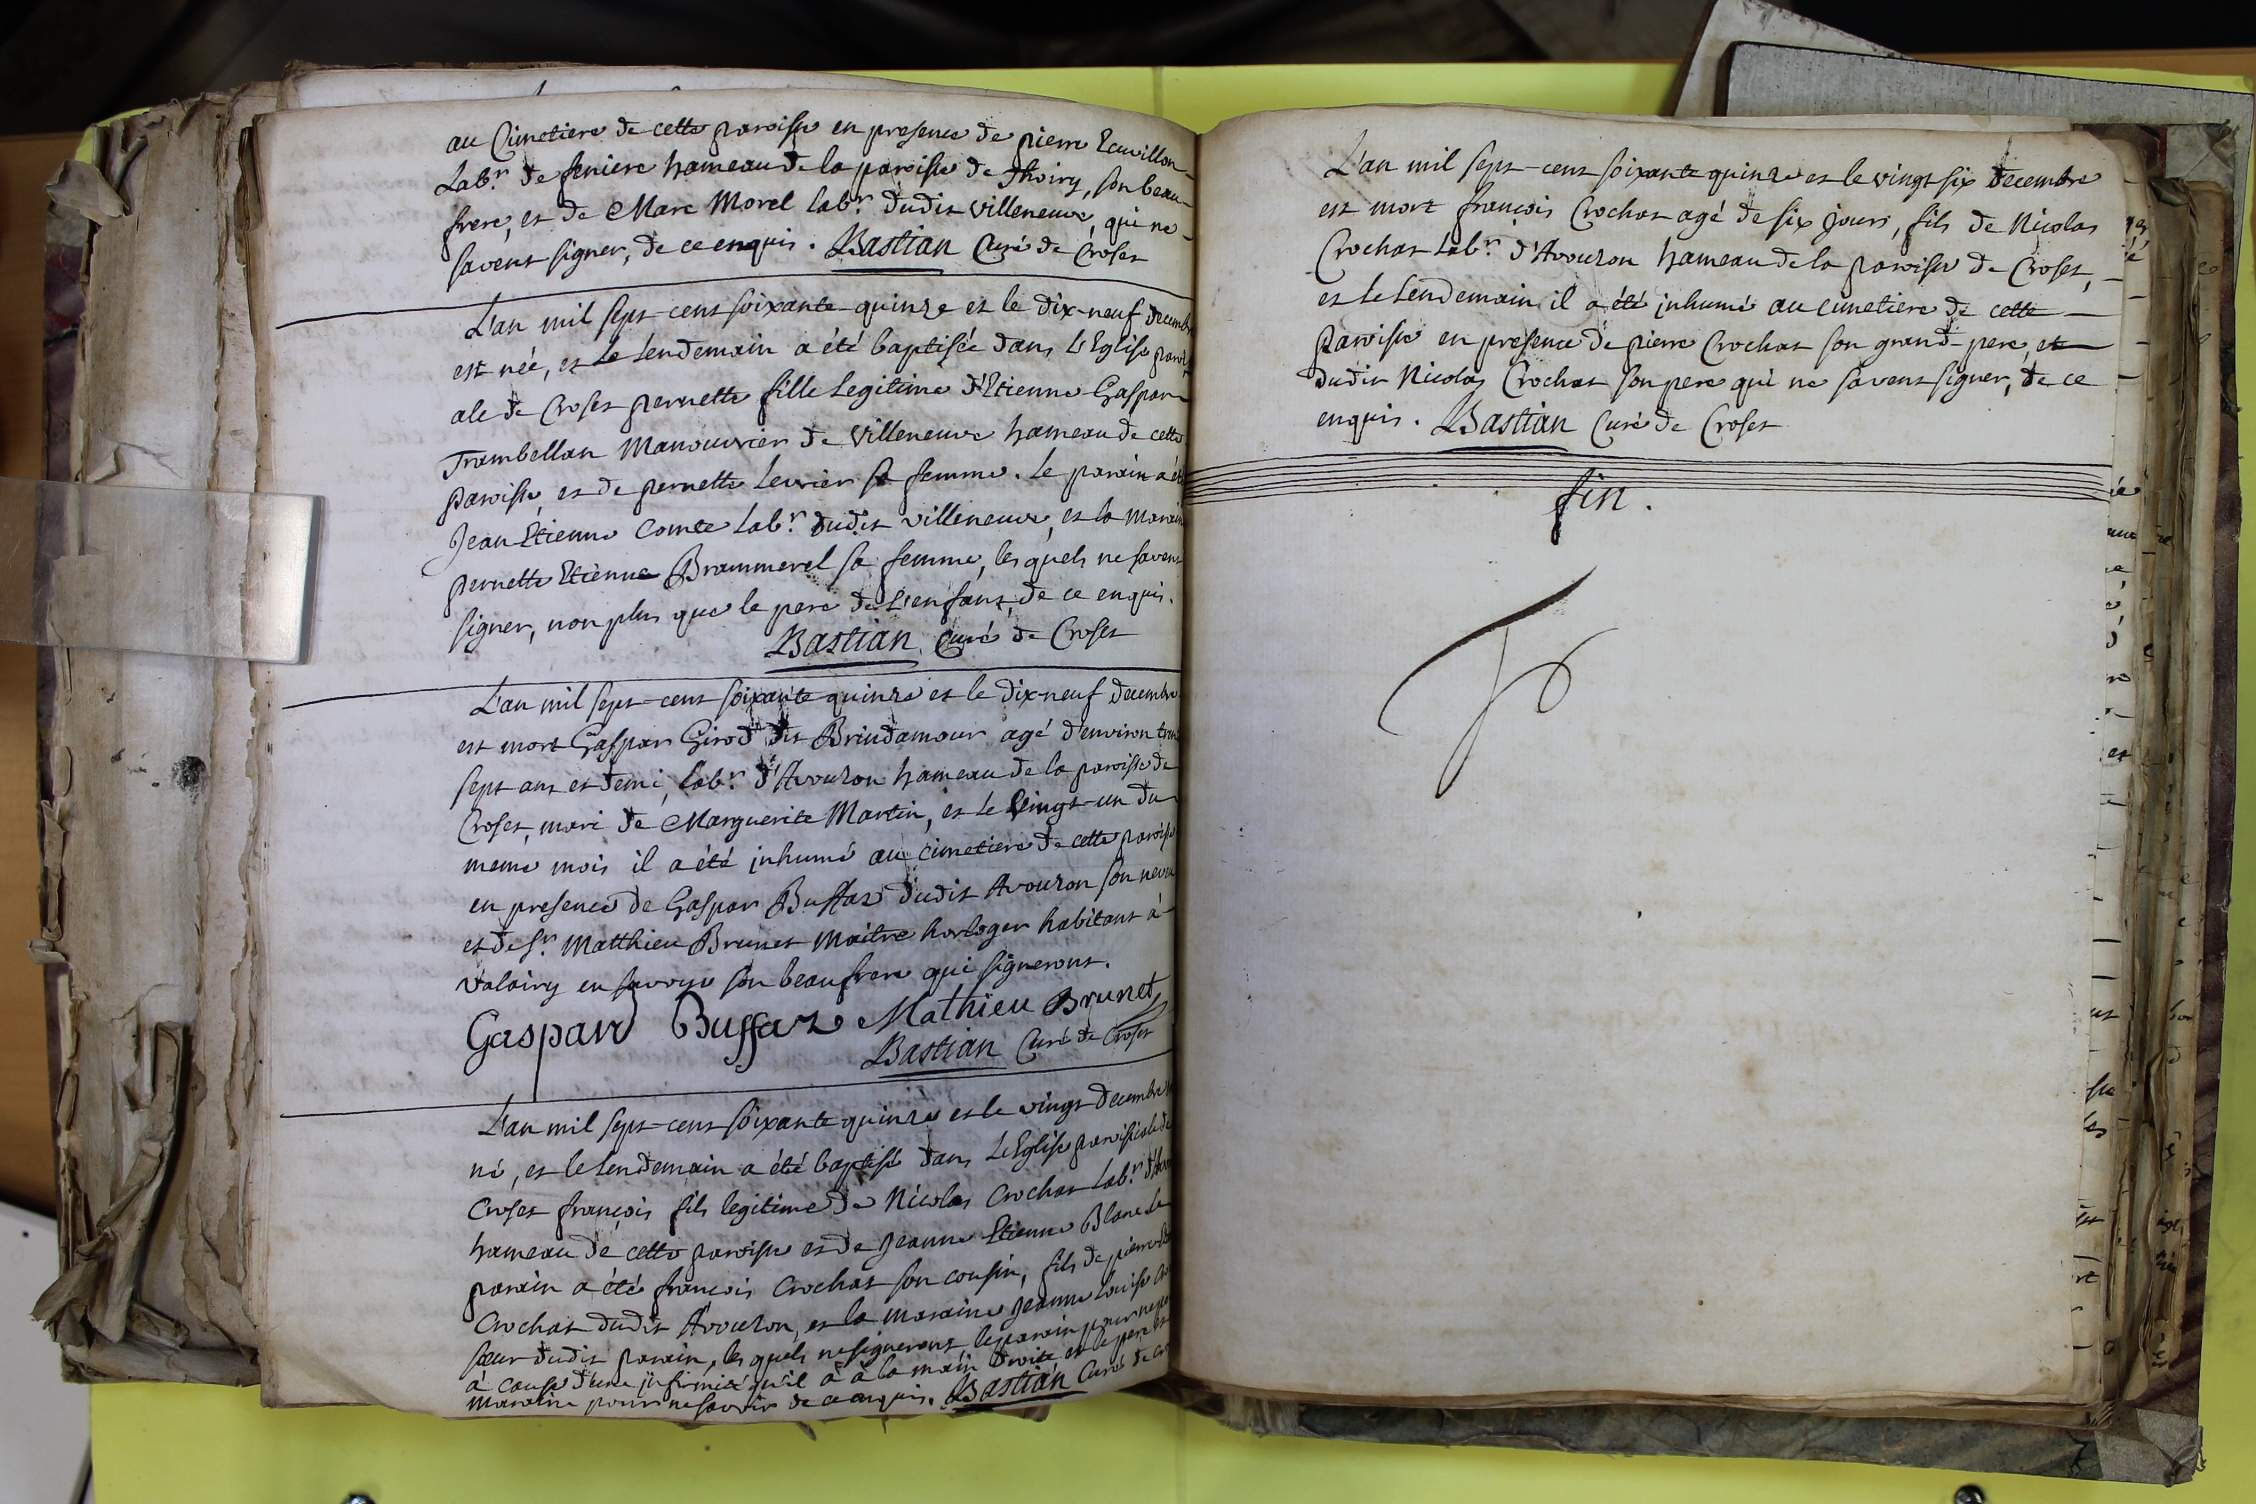 au Cimetiere de cette paroisse en presence de pierre Ecuvillon
Lab.r de feniere hameau de la paroisse de Thoiry, son beau-
frere, et de Marc Morel lab.r dudit villeneuve, qui ne
savent signer, de ce enquis. Bastian Curé de Croset
L'an mil sept-cent soixante-quinze et le dix-neuf decembre
est née, et le lendemain a été baptisée dans L'Eglise paroissi
ale de Croset pernette fille legitime d'Etienne Gaspar
Trambellan Manouvrier de Villeneuve hameau de cette
paroisse, et de pernette Levrier sa femme. le parain a été
Jean Etienne Comte lab.r dudit villeneuve, et la Maraine
pernette Etienne Brammerel sa femme, les quels ne savent
signer, non plus que le pere de L'enfant, de ce enquis.
Bastian Curé de Croset
L'an mil sept-cent soixante quinze et le dix-neuf decembre
est mort Gaspar Girod dit Brindamour agé d'environ trente
sept ans et demi, lab.r d'Avouzon hameau de la paroisse de
Croset, mari de Marguerite Martin, et le Vingt-un du
meme mois il a été inhumé au cimetiere de cette paroisse
en presence de Gaspar Buffaz dudit Avouzon son neveu
et de S.r Matthieu Brunet Maitre horloger habitant à
Valeiry en Savoye son beaufrere qui signeront.
Gaspard Buffaz Mathieu Brunet
Bastian Curé de Croset
L'an mil sept-cent soixante quinze et le vingt decembre
né, et le lendemain a été baptisé dans L'Eglise paroissiale de
Croset françois fils legitime de Nicolas Crochat Lab.r d'Avou
hameau de cette paroisse et de Jeanne Etienne Blanc Le
parain a été françois Crochat son cousin, fils de pierre
Crochat dudit Avouzon, et la maraine Jeanne Louise
sœur dudit parain, les quels ne signeront, le parain pour ne
à cause d'une infirmité qu'il a à la main droite et le pere et
maraine pour ne savoir de ce enquis. Bastian Curé de Cro
L'an mil sept-cent soixante quinze et le vingt six decembre
est mort françois Crochat agé de six jours, fils de Nicolas
Crochat Lab.r d'Avouzon hameau de la paroisse de Croset,
et le Lendemain il a été inhumé au cimetiere de cette
paroisse en presence de pierre Crochat son grand-pere, et
dudit Nicolas Crochat son pere qui ne savent signer, de ce
enquis. Bastian Curé de Croset
fin.